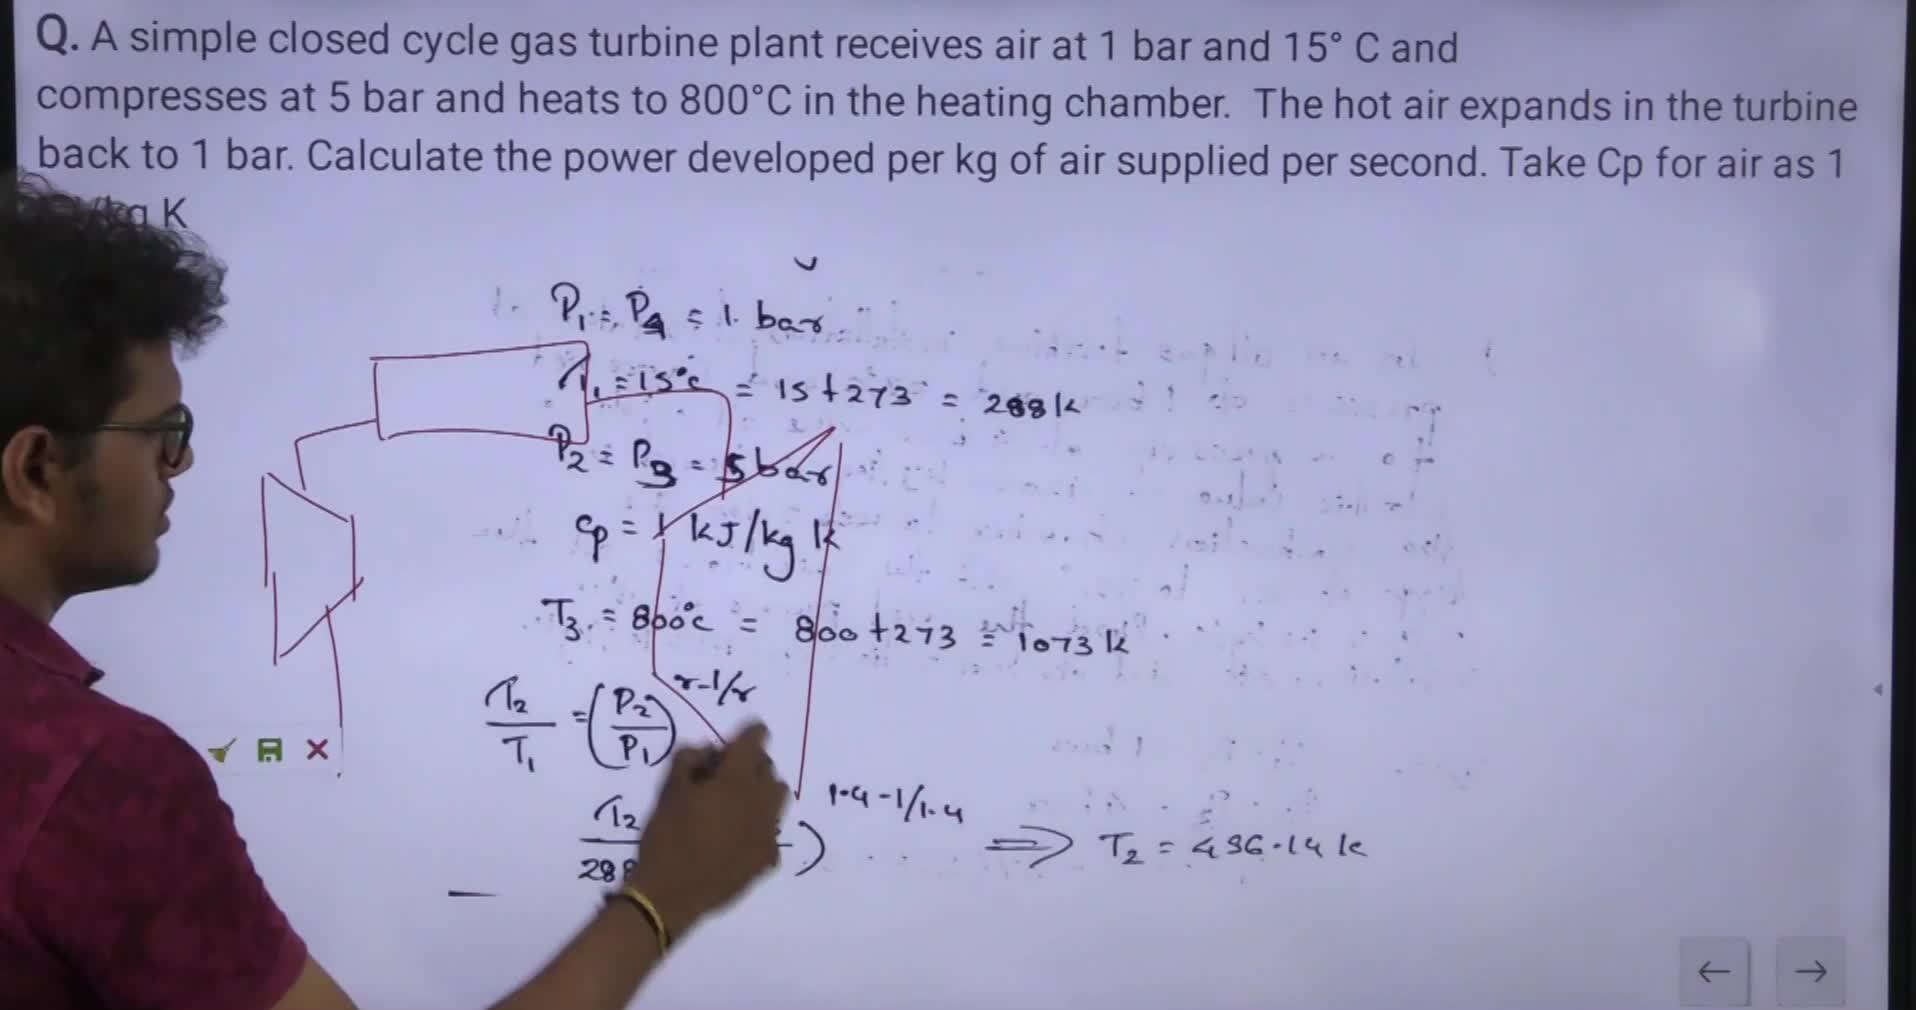 Q. A simple closed cycle gas turbine plant receives air at 1 bar and 15° C and
compresses at 5 bar and heats to 800°C in the heating chamber. The hot air expands in the turbine
back to 1 bar. Calculate the power developed per kg of air supplied per second. Take Cp for air as 1
K
P₁ = P₄ = 1 bar
T₁ = 15°C = 15 + 273 = 288 k
P₂ = P₃ = 5 bar
Cp = 1 kJ/kg k
T₃ = 800°C = 800 + 273 = 1073 k
T₂/T₁ = (P₂/P₁)^r-1/r
T₂/288 )^1.4-1/1.4 ⇒ T₂ = 456.14 k